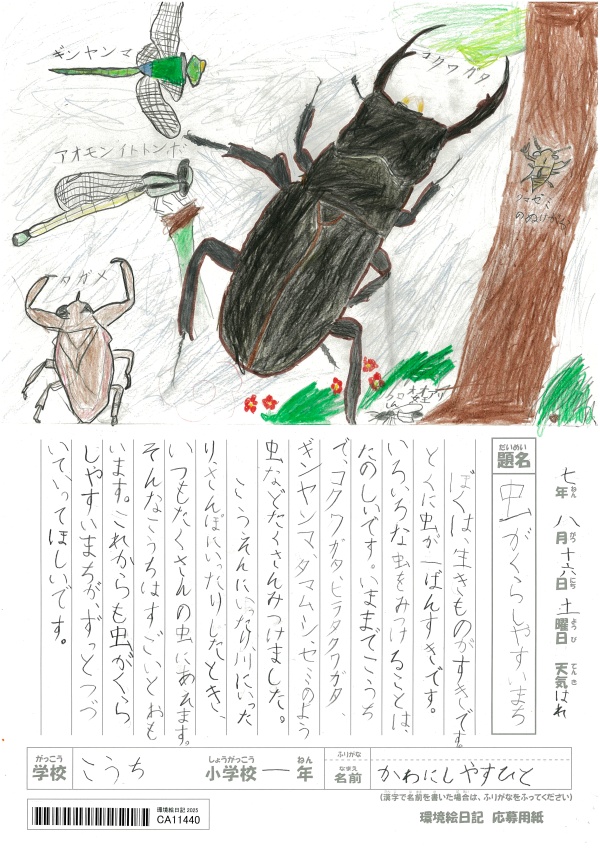 ギンヤンマ
コクワガタ
アオモンイトトンボ
タガメ
クロ
女王アリ
のぬけがら
七年八月十六日土曜日 天気はれ
ねん がつ にち ようび てんき
だいめい
題名
虫がくらしやすいまち
ぼくは、生きものがすきです。
とくに虫が一ばんすきです。
いろいろな虫をみつけることは、
たのしいです。いままでこうち
で、コクワガタ、ヒラタクワガタ、
ギンヤンマ、タマムシ、セミのよう
虫などたくさんみつけました。
こうえんにいったり、川にいった
り、さんぽにいったりしたとき、
いつもたくさんの虫にあえます。
そんなこうちはすごいとおも
います。これからも虫がくら
しやすいまちが、ずっとつづ
いていってほしいです。
がっこう しょうがっこう ねん ふりがな
学校 こうち 小学校 一年
なまえ
名前 かわにしやすひと
(漢字で名前を書いた場合は、ふりがなをふってください)
環境絵日記 2025
CA11440
環境絵日記 応募用紙